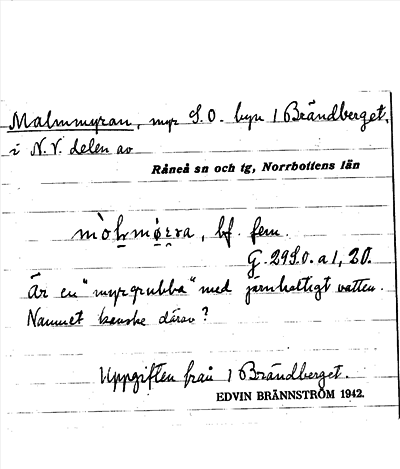 Malmmyran, myr S.O. byn 1 Brändberget,
i N.V. delen av
Råneå sn och tg, Norrbottens län
bf. fem.
G. 29 S.O. a 1, 20.
Är en "myrgrubba" med järnhaltigt vatten.
Namnet kanske därav?
Uppgiften från 1 Brändberget.
EDVIN BRÄNNSTRÖM 1942.